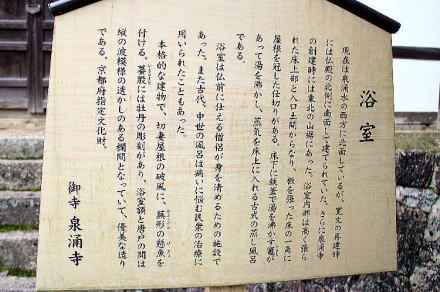 浴室
現在は泉涌水の西方に北面しているが、寛文の再建時
には仏殿の北側に南面して建てられていた。さらに泉涌寺
の創建時には東北の山際にあった。浴室内部は高く張ら
れた床上部と入口土間からなり、板を張った床の一角に
屋根を冠した仕切りがある。床下に鉄釜で湯を沸かす竃が
あって湯を沸かし、蒸気を床上に入れる古式の蒸し風呂
である。
浴室は仏前に仕える僧侶が身を清めるための施設で
あった。また古代、中世の風呂は病いに悩む民衆の治療に
用いられたこともあった。
本格的な建物で、切妻屋根の破風に、蕪形の懸魚を
付ける。蟇股には牡丹の彫刻があり、浴室額と唐戸の間は
縦の波模様の透かしのある欄間となっていて、優美な造り
である。京都府指定文化財。
御寺 泉涌寺